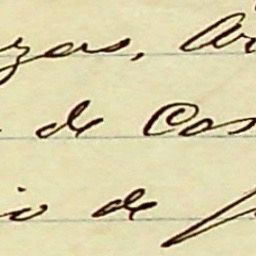 zas, Ar
de Cas
io de f